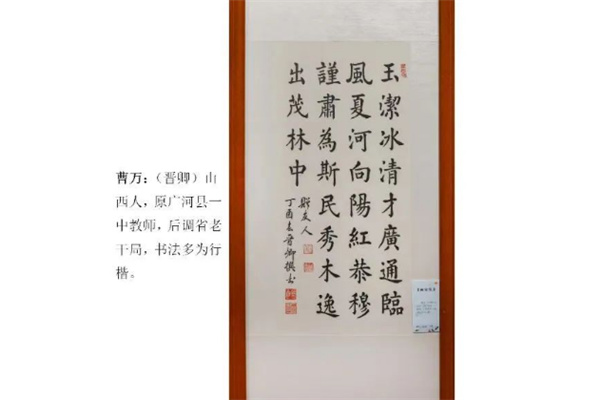 曹万：（晋卿）山
西人，原广河县一
中教师，后调省老
干局，书法多为行
楷。
玉潔冰清才廣通臨
風夏河向陽紅恭穆
謹肅為斯民秀木逸
出茂林中
丁酉春晋卿撰书